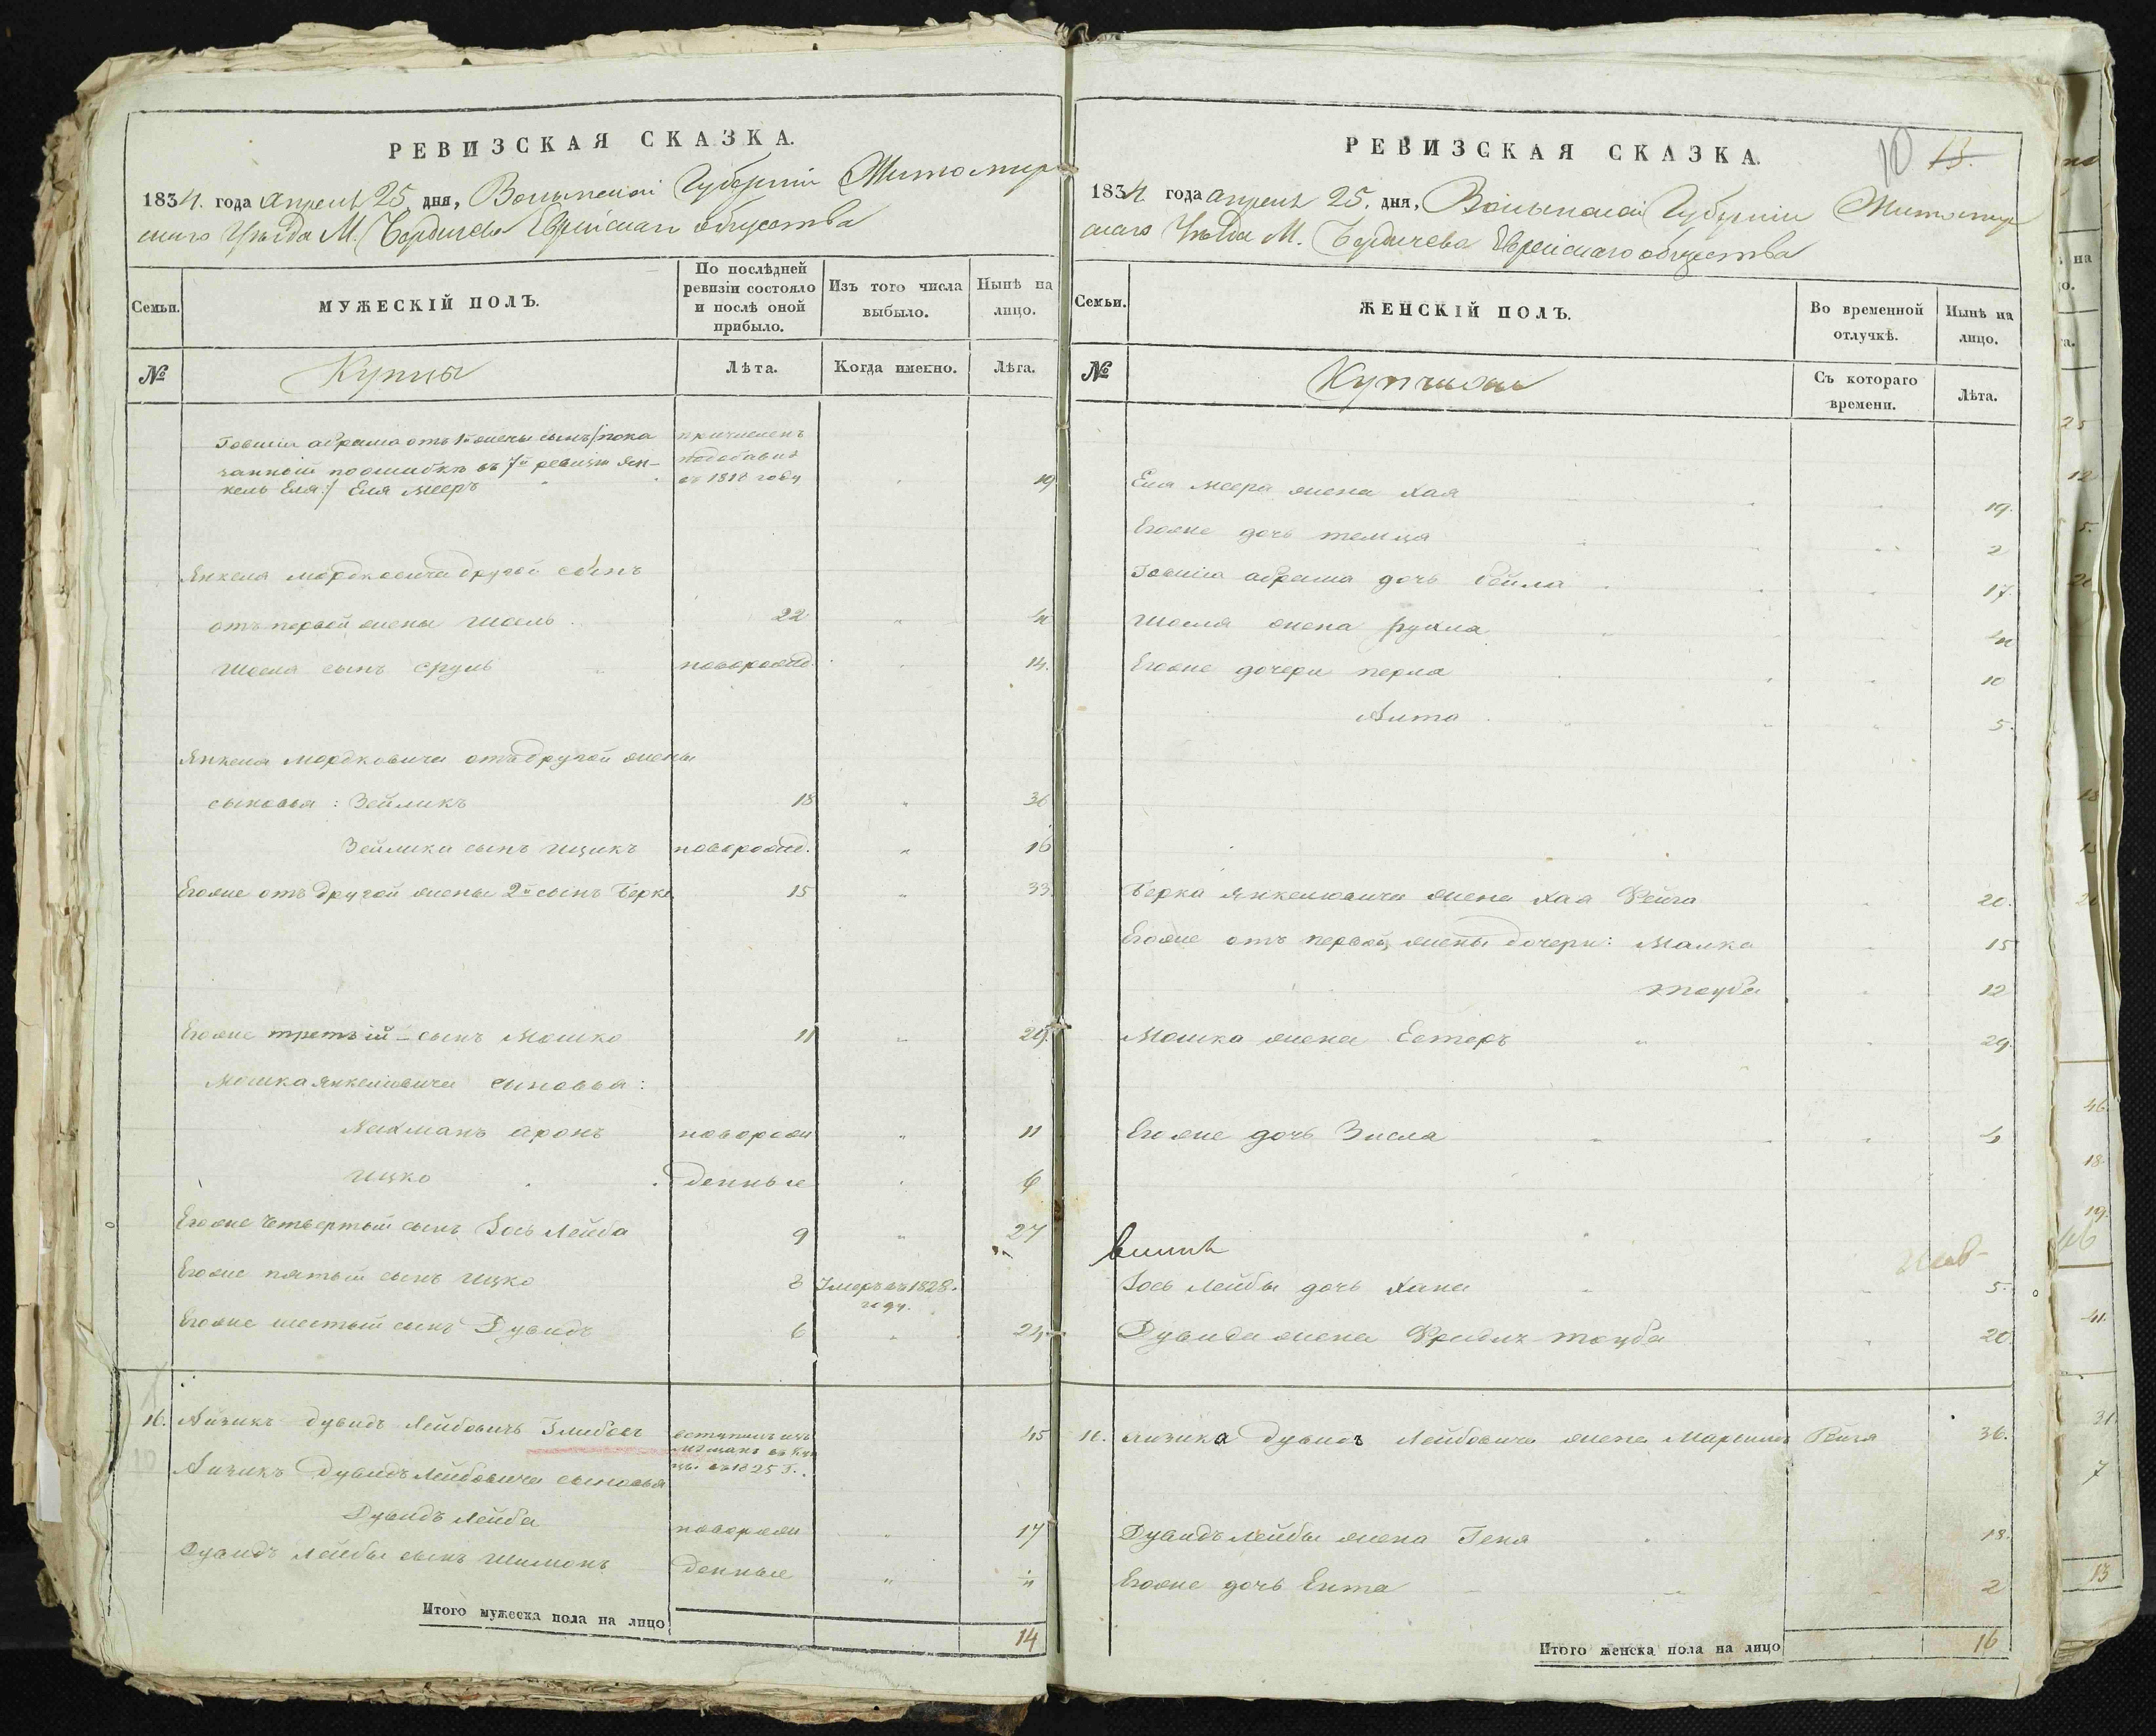 РЕВИЗСКАЯ СКАЗКА.
1834. года апреля 25 дня, Волынской Губернiи Житомир
скаго Уезда М. Бердичева Еврейскаго общества
Семьи.
МУЖЕСКІЙ ПОЛЪ.
По послѣдней ревизіи состояло и послѣ оной прибыло.
Изъ того числа выбыло.
Нынѣ на лицо.
№
Купцы
Лѣта.
Когда именно.
Лѣта.
абрама отъ 1й жены сынъ /пока причисленъ
занной по ошибкѣ въ 7й ревизіи Ян-
кель Еля:/ Еля Мееръ въ 1818 году " 19
Янкеля Мордковича другой сынъ
отъ первой жены Шаель 22 "
Шаеля сынъ Сруль новорожд. " 14.
Янкеля Мордковича отъ другой жены
сыновья: Зейликъ 18 " 36
Зейлика сынъ Ицикъ новорожд. " 16
Егоже отъ другой жены 2й сынъ Берко 15 " 33.
Егоже третьій - сынъ Мошко 11 " 29.
Мошка Янкелювича сыновья:
Нахманъ Аронъ новорож " 11
Ицко денные " 6
Егоже четвертый сынъ Іось Лейба 9 " 27
Егоже пятый сынъ Ицко 8 Умеръ въ 1828. году.
Егоже шестый сынъ Дувидъ 6 " 24
16. Айзикъ Дувидъ Лейбовичъ вступилъ изъ мѣщанъ въ Куп 45
цы въ 1825 г.
Айзикъ Дувидъ Лейбовича сыновья
Дувидъ Лейба новорож " 17
Дувидъ Лейбы сынъ Шимонъ денные "
Итого мужеска пола на лицо 14
РЕВИЗСКАЯ СКАЗКА.
10 13.
1834. года апреля 25. дня, Волынской Губернiи Житомир
скаго Уезда М. Бердичева Еврейскаго общества
Семьи.
ЖЕНСКІЙ ПОЛЪ.
Во временной отлучкѣ.
Нынѣ на лицо.
№
Съ котораго времени.
Лѣта.
Еля Меера жена Хая 19.
Егоже дочь Темца 2
абрама дочь Бейла 17.
Шаеля жена Рухля
Егоже дочери Перла 10
5.
Берка Янкелювича жена Хая Фейга 20.
Егоже отъ первой жены дочери: Малка 15
Тауба 12
Мошка жена Естеръ 29.
Егоже дочь Зисля 4
Іось Лейбы дочь Хана 5.
Дувида жена Фридль Тауба 20
16. Айзика Дувидъ Лейбовича жена 36.
Дувидъ Лейбы жена Геня 18.
Егоже дочь Ента 2
Итого женска пола на лицо 16